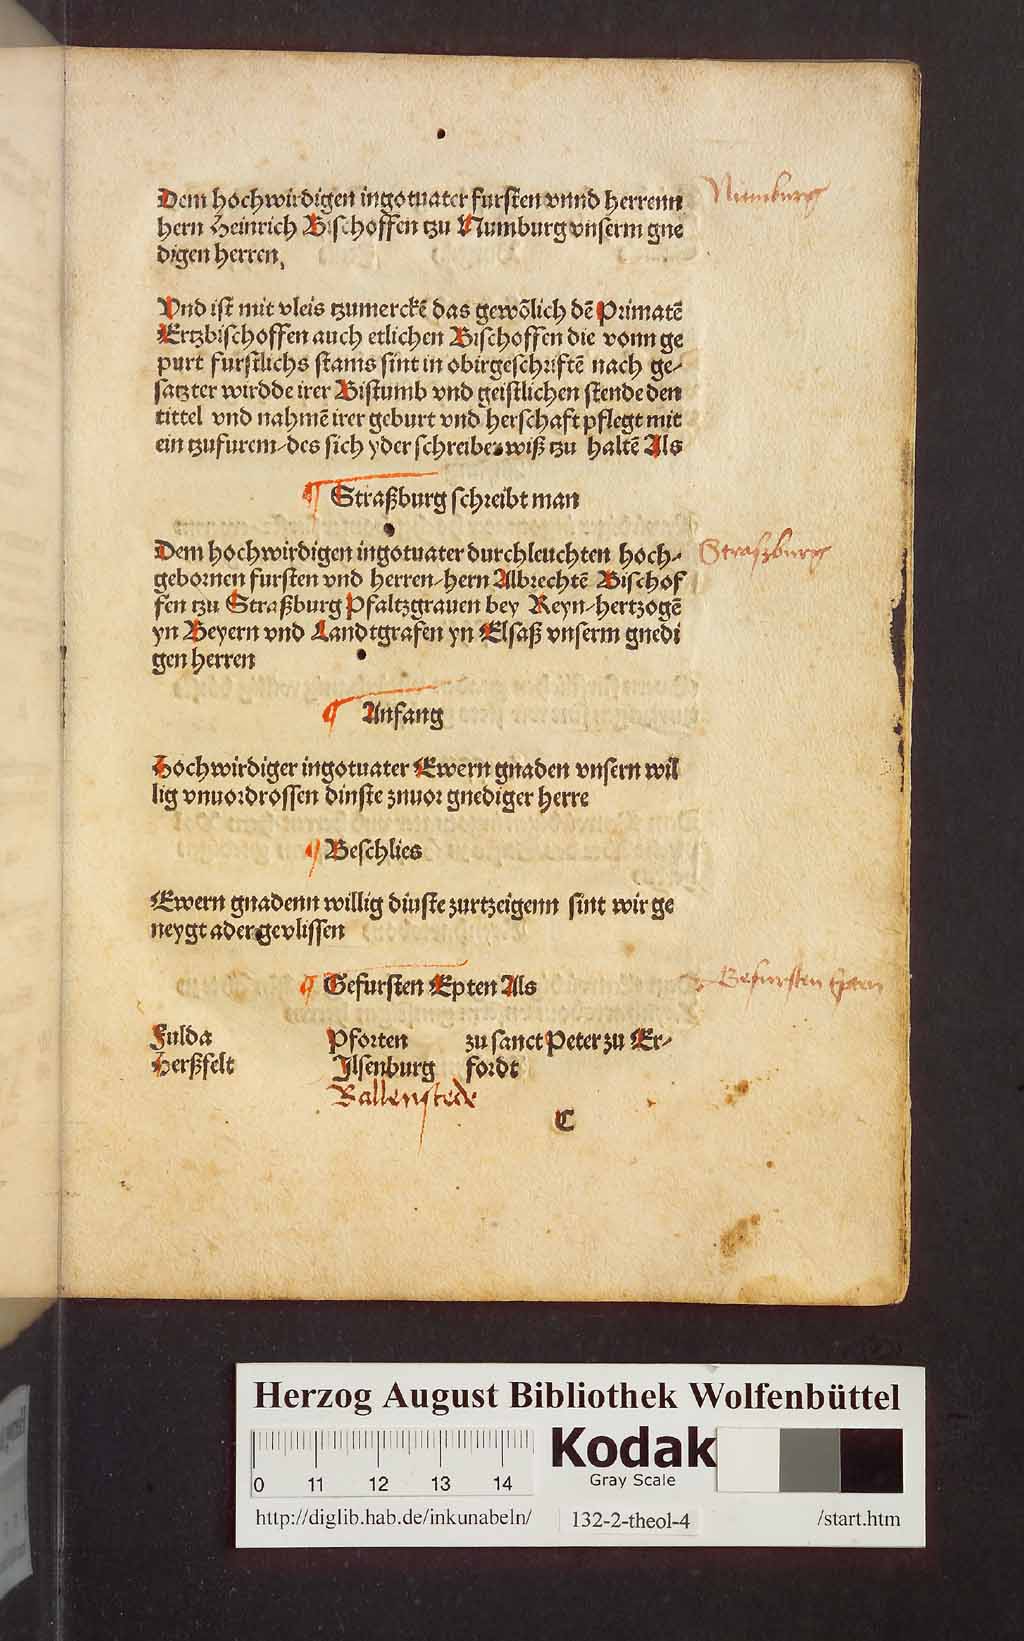 Dem hochwirdigen ingotuater fursten vnnd herrenn
Numburg
hern Heinrich Bischoffen tzu Numburg vnserm gne
digen herren,
Vnd ist mit vleis tzumerckē das gewōlich dē Primatē
Ertzbischoffen auch etlichen Bischoffen die vonn ge
purt furstlichs stams sint in obirgeschriftē nach ge-
satzter wirdde irer Bistumb vnd geistlichen stende den
tittel vnd nahmē irer geburt vnd herschaft pflegt mit
ein tzufurem-des sich yder schreiber wiß tzu haltē Als
¶ Straßburg schreibt man
Dem hochwirdigen ingotuater durchleuchten hoch-
Straßburg
gebornen fursten vnd herren-hern Albrechtē Bischof
fen tzu Straßburg Pfaltzgrauen bey Reyn-hertzogē
yn Beyern vnd Landtgrafen yn Elsaß vnserm gnedi
gen herren
¶ Anfang
Hochwirdiger ingotuater Ewern gnaden vnsern wil
lig vnuordrossen dinste znuor gnediger herre
¶ Beschlies
Ewern gnadenn willig diuste zurtzeigenn sint wir ge
neygt ader gevlissen
¶ Gefursten Epten Als
Gefursten
Fulda Pforten zu sanct Peter zu Er-
Herßfelt Jlsenburg fordt
Ballenstede
C
Herzog August Bibliothek Wolfenbüttel
Kodak
Gray Scale
0 11 12 13 14
http://diglib.hab.de/inkunabeln/ 132-2-theol-4 /start.htm